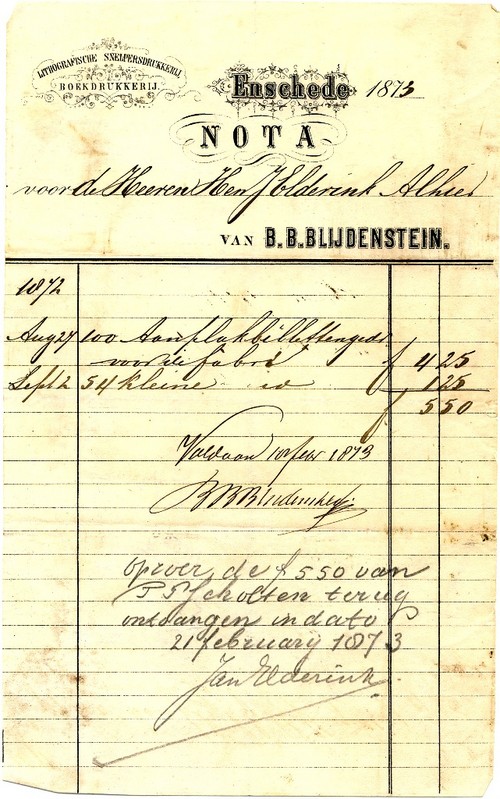 LITHOGRAFISCHE SNELPERSDRUKKERIJ
BOEKDRUKKERIJ.
Enschede 1873
NOTA
voor de Heeren H en J Elderink Alhier
VAN B. B. BLIJDENSTEIN.
1872
Aug 27 100 Aanplakbilletten gedr
voor de fabr f 4 25
Sept 2 54 kleine id 1 25
f 5 50
Voldaan 10 feb 1873
BBBlijdenstein
de f 5 50 van
Scholten terug
ontvangen in dato
21 february 1873
Jan Elderink.